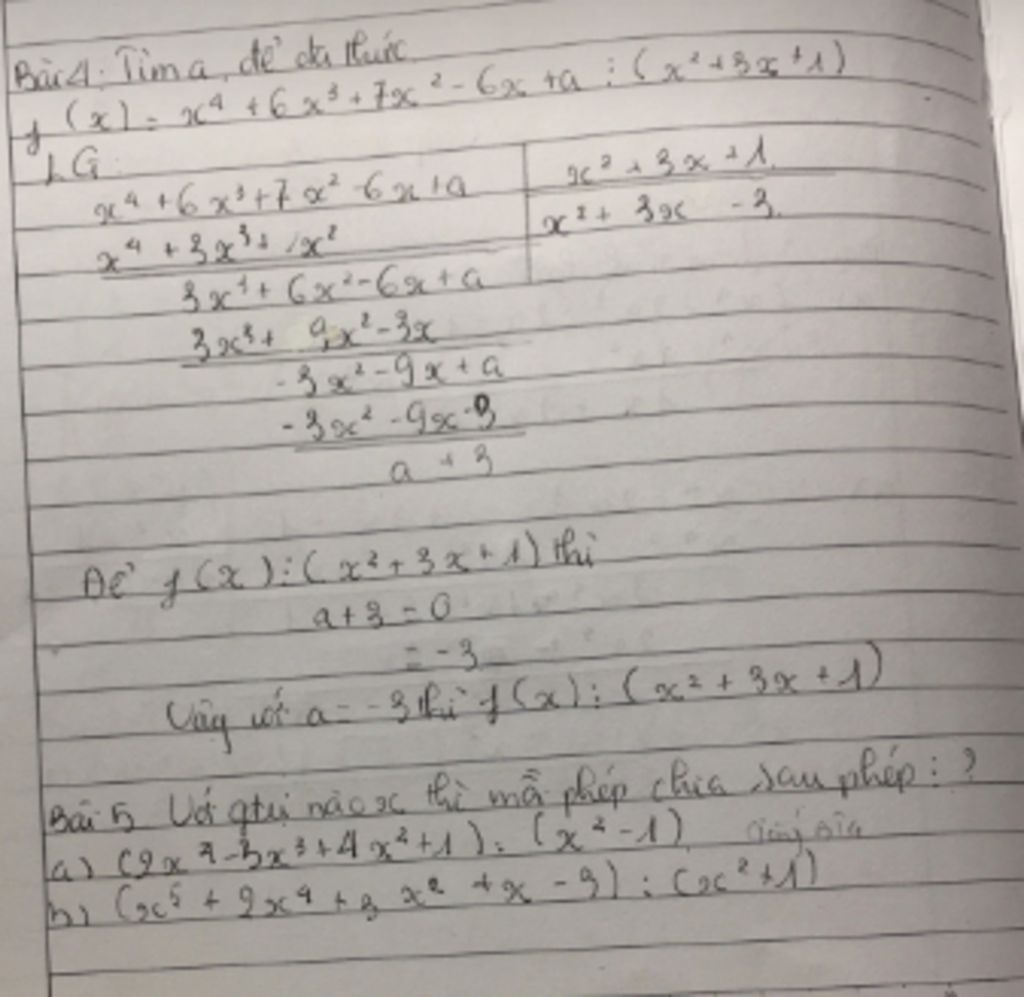 Bài 4: Tìm a để đa thức
f(x) = x⁴ + 6x³ + 7x² - 6x + a ⋮ (x² + 3x + 1)
LG:
x⁴ + 6x³ + 7x² - 6x + a | x² + 3x + 1
x⁴ + 3x³ + x² | x² + 3x - 3
3x³ + 6x² - 6x + a
3x³ + 9x² - 3x
- 3x² - 9x + a
- 3x² - 9x - 3
a + 3
Để f(x) ⋮ (x² + 3x + 1) thì
a + 3 = 0
= -3
Vậy với a = -3 thì f(x) ⋮ (x² + 3x + 1)
Bài 5 Với gtrị nào x thì mỗi phép chia sau phép : ?
a) (2x⁴ - 3x³ + 4x² + 1) : (x² - 1)
b) (x⁵ + 2x⁴ + 3x² + x - 3) : (x² + 1)